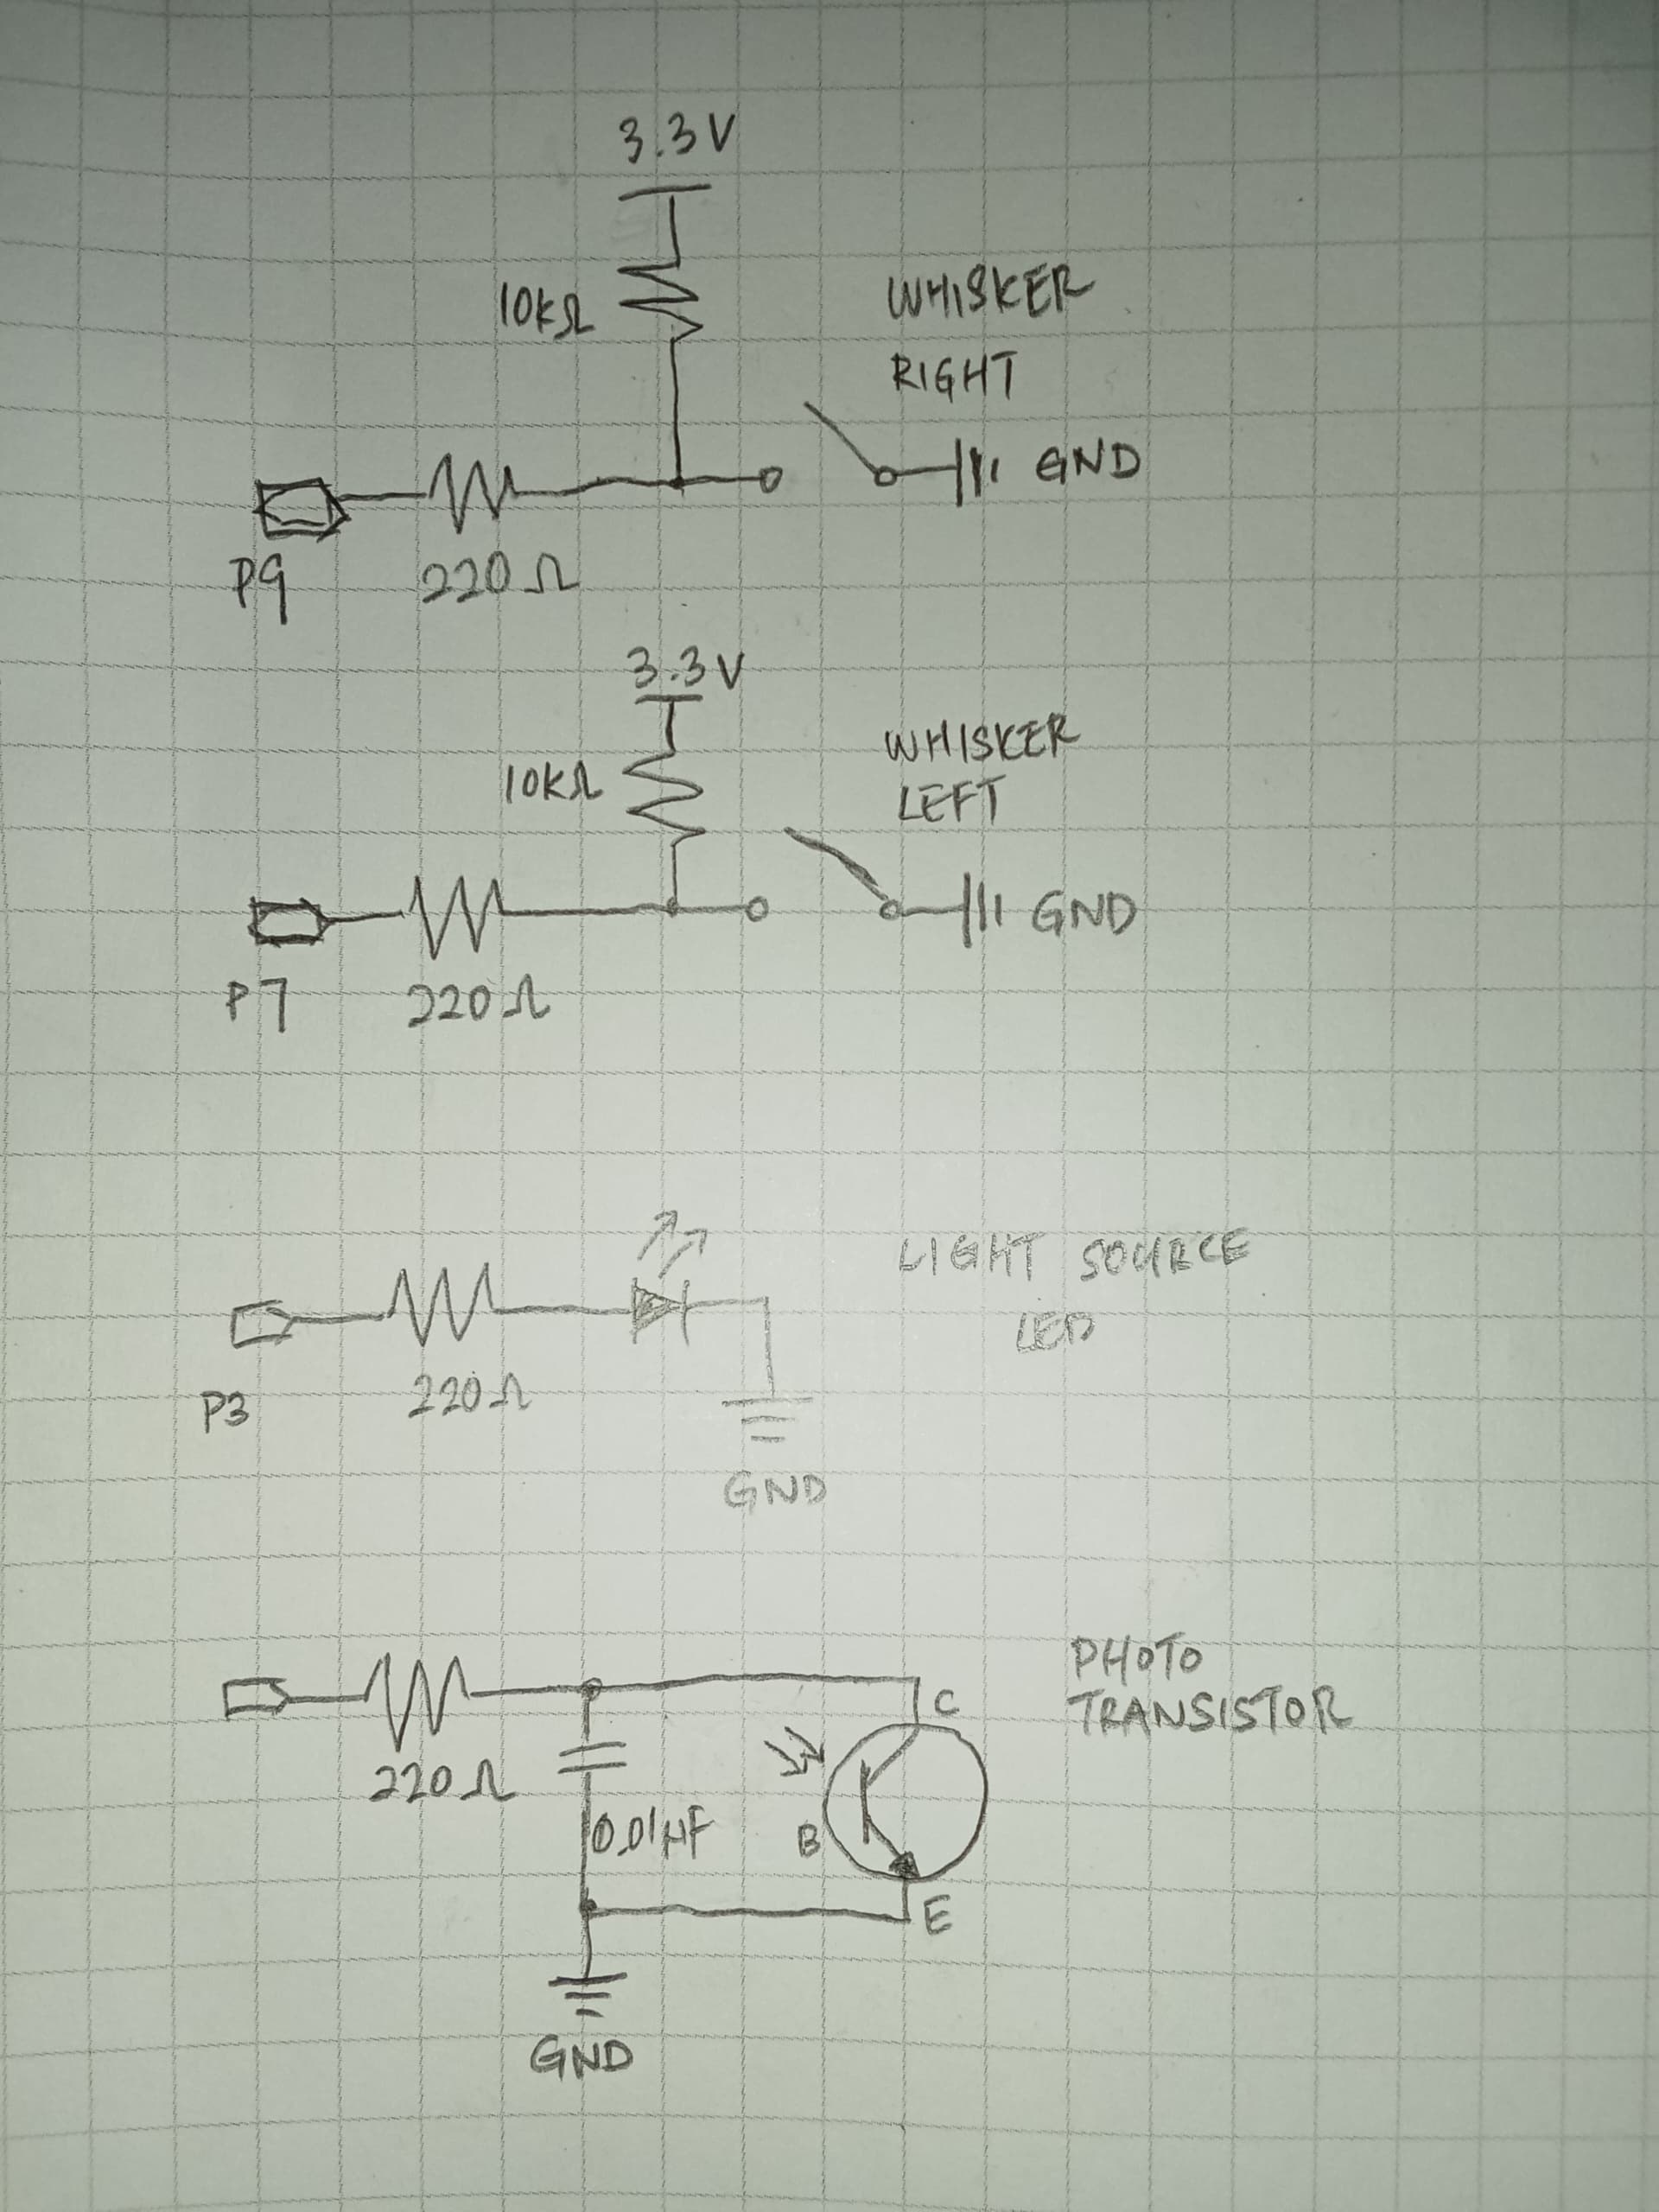 3.3V
10kΩ
WHISKER
RIGHT
GND
P9
220Ω
3.3V
10kΩ
WHISKER
LEFT
GND
P7
220Ω
LIGHT SOURCE
LED
P3
220Ω
GND
PHOTO
TRANSISTOR
C
220Ω
0.01µF
B
E
GND